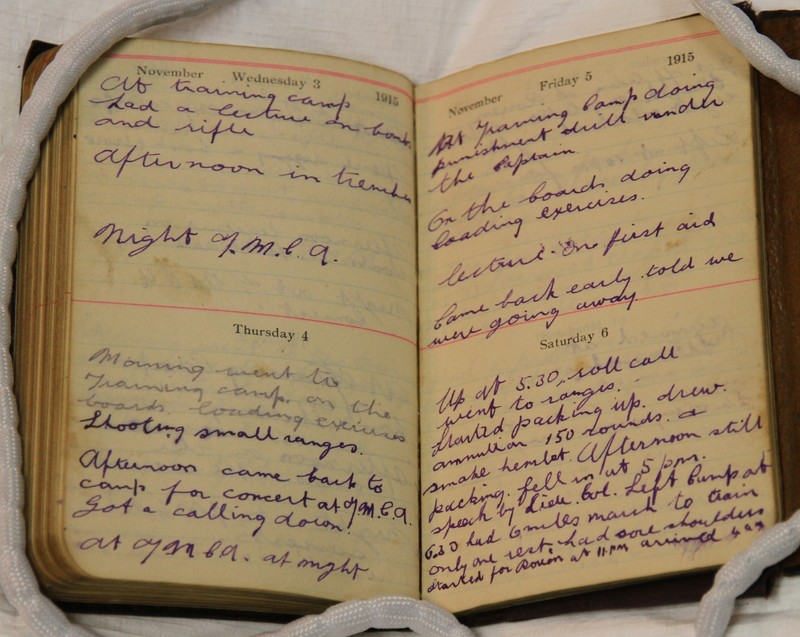 November Wednesday 3 1915
At training camp
had a lecture on bomb
and rifle
Afternoon in trenches
Night Y.M.C.A.
Thursday 4
Morning went to
Training camp. on the
boards. loading exercises
Shooting small ranges.
Afternoon came back to
camp for concert at Y.M.C.A.
Got a calling down.
At Y.M.C.A. at night
November Friday 5 1915
At Training Camp doing
punishment drill under
the Captain
On the boards doing
loading exercises.
lecture. on first aid
Came back early told we
were going away
Saturday 6
Up at 5.30, roll call
went to ranges.
started packing up. drew.
ammution 150 rounds. a
smoke hemlet. Afternoon still
packing. fell in at 5 pm.
speech by Lieu. Col. Left Camp at
6.30 had 6 miles march to train
only one rest had sore shoulders
started for Rouen at 11 PM arrived